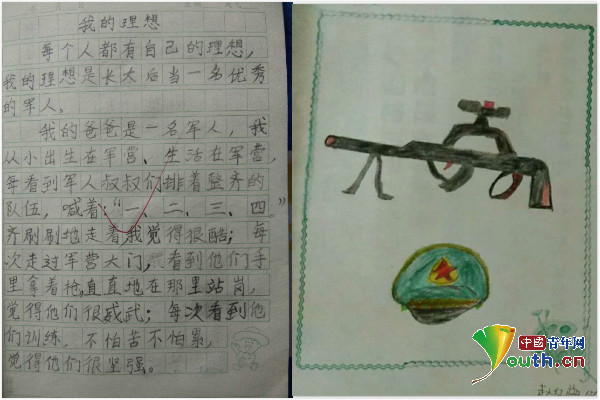 我的理想
每个人都有自己的理想，
我的理想是长大后当一名优秀
的军人。
我的爸爸是一名军人，我
从小出生在军营、生活在军营，
每看到军人叔叔们排着整齐的
队伍，喊着：“一、二、三、四。”
齐刷刷地走着我觉得很酷；每
次走过军营大门，看到他们手
里拿着枪，直直地在那里站岗，
觉得他们很威武；每次看到他
们训练，不怕苦不怕累，
觉得他们很坚强。
中國青年网
Youth.cn